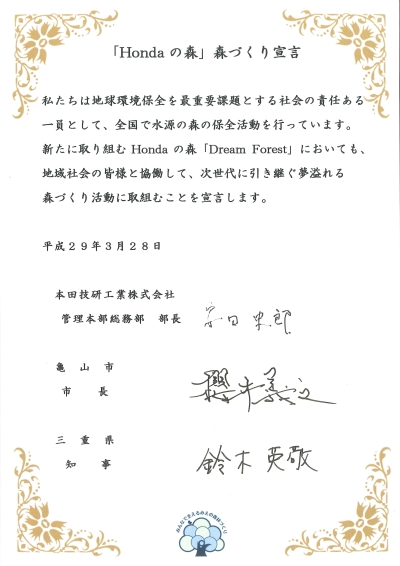 「Hondaの森」森づくり宣言
私たちは地球環境保全を最重要課題とする社会の責任ある
一員として、全国で水源の森の保全活動を行っています。
新たに取り組むHondaの森「Dream Forest」においても、
地域社会の皆様と協働して、次世代に引き継ぐ夢溢れる
森づくり活動に取組むことを宣言します。
平成29年3月28日
本田技研工業株式会社
管理本部総務部 部長
亀山市
市長 櫻井義之
三重県
知事 鈴木英敬
みんなで支えるみえの森林づくり